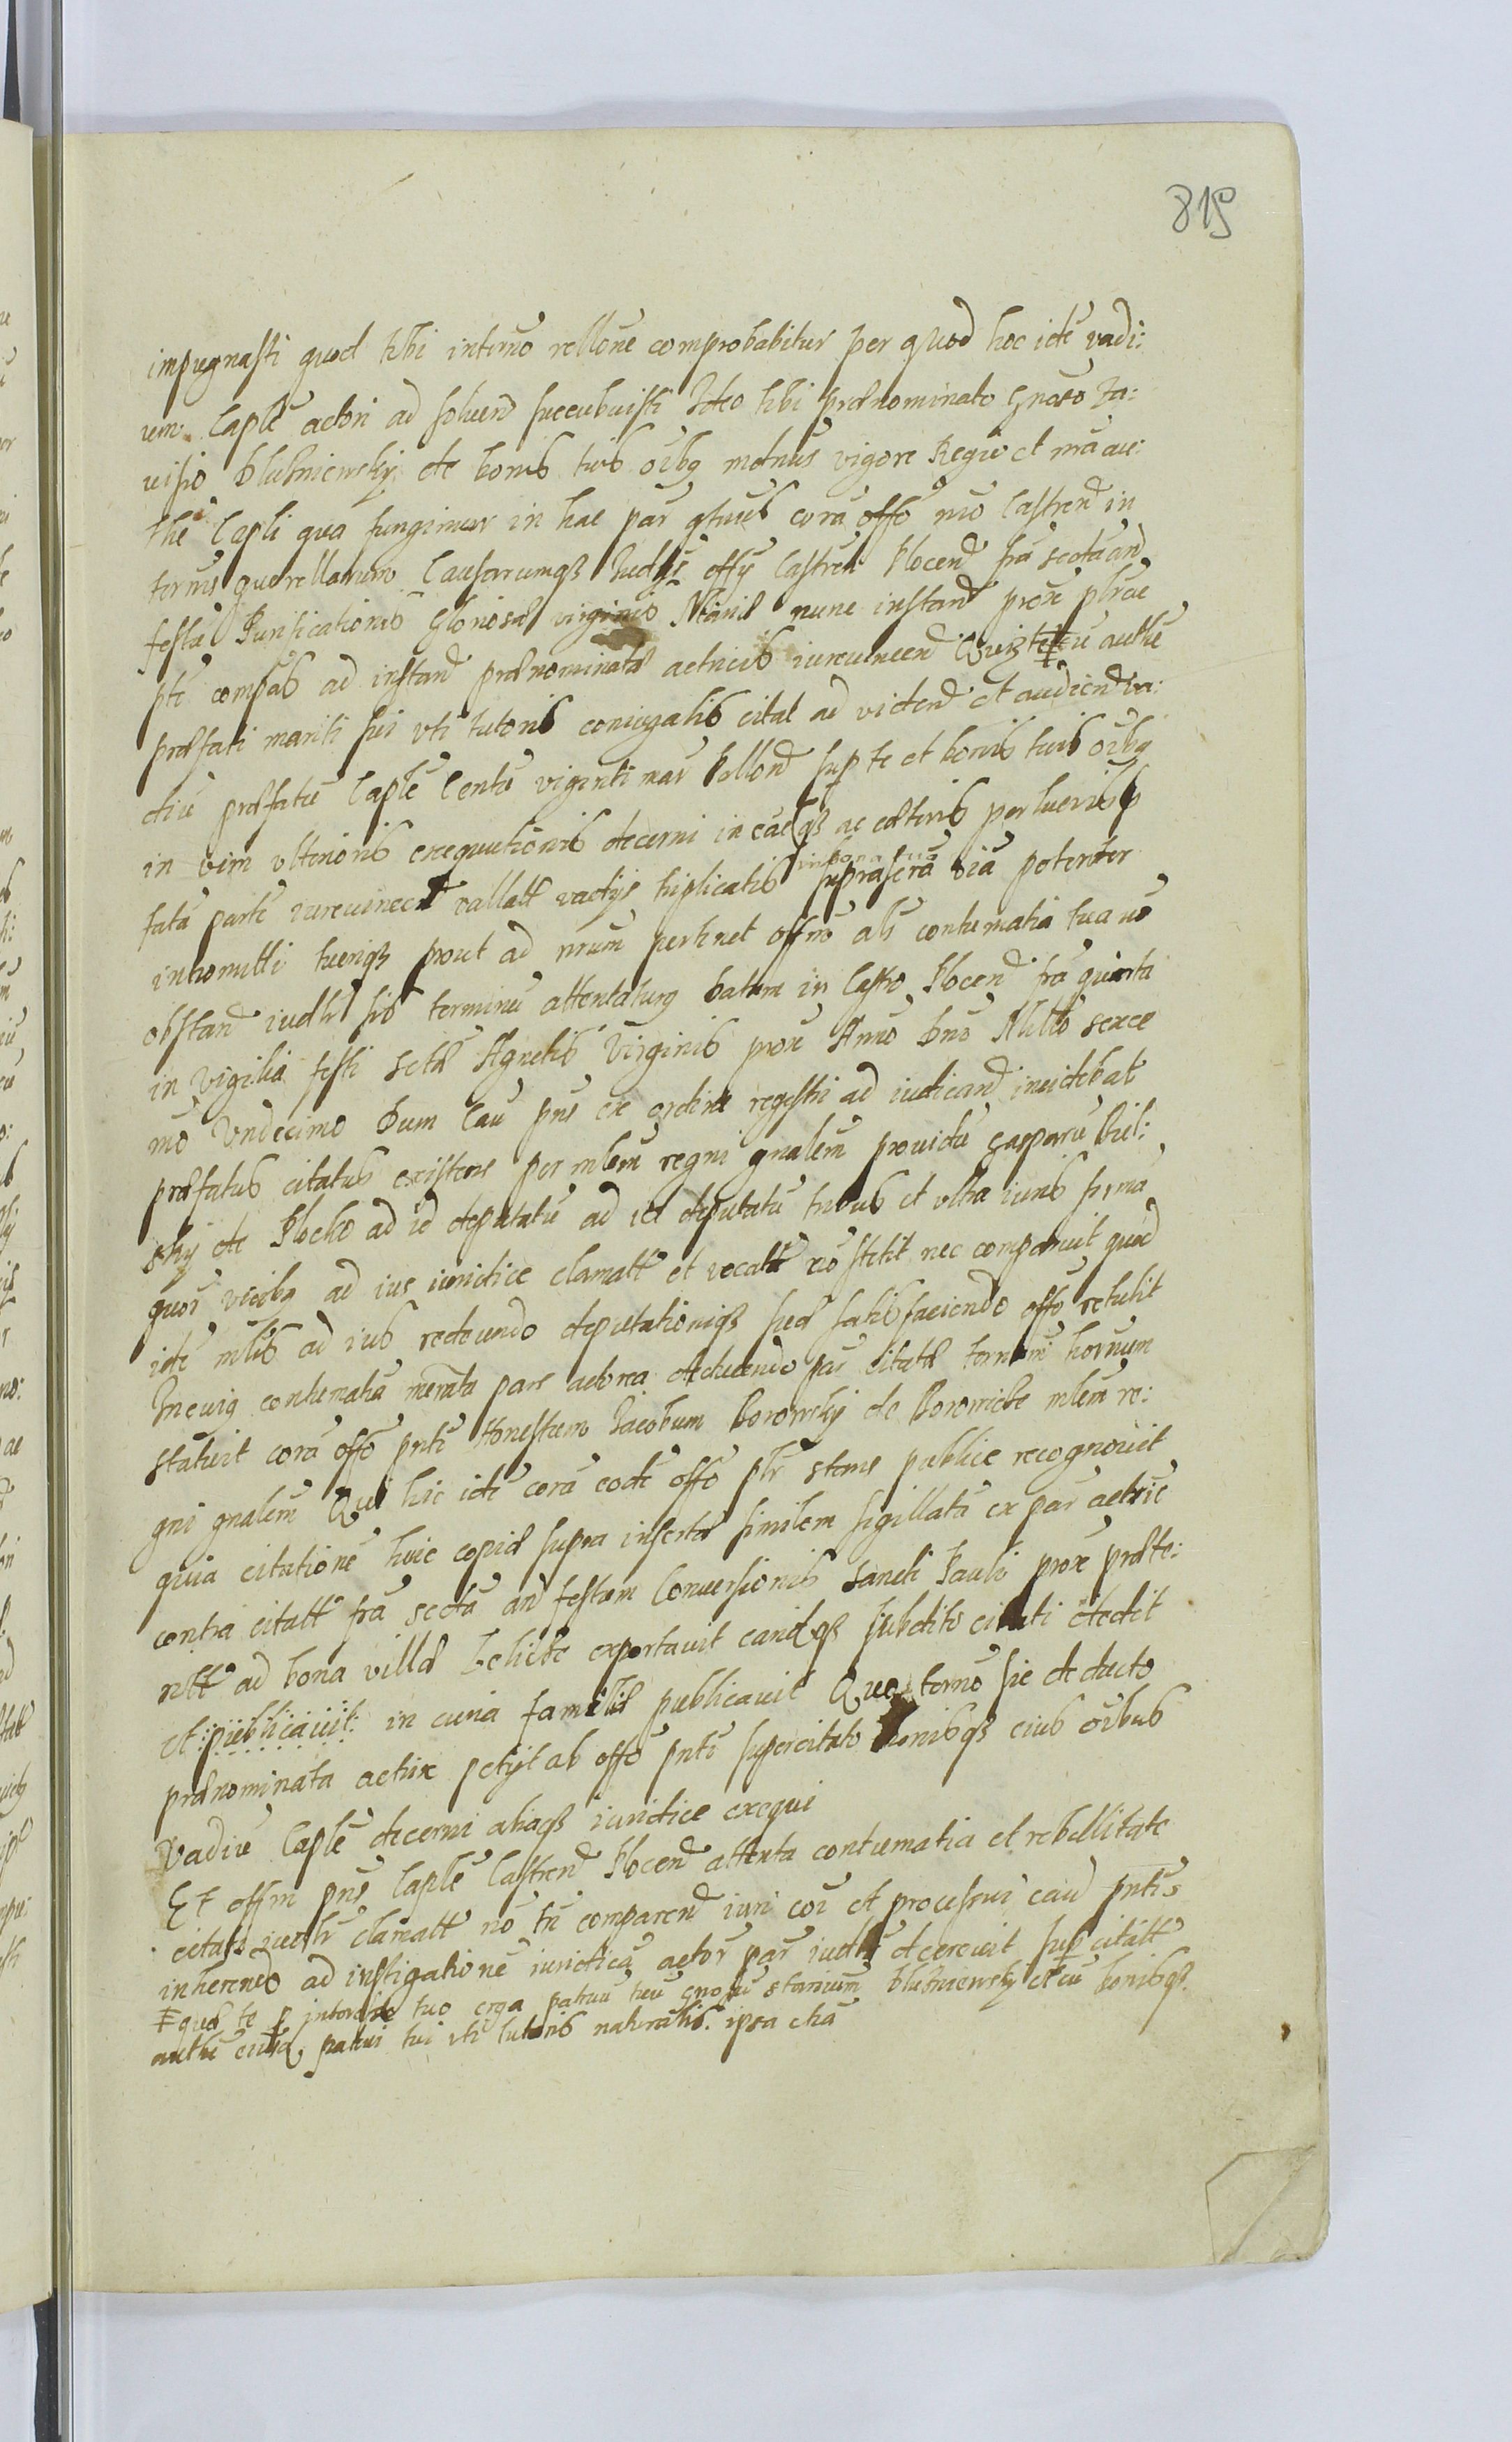 819
impugnasti quod tibi in termo rellone comprobabitur per quod hoc idē vadi:
um Caplē actori ad soluend succubuisti Ideo tibi prænominato Gnoso
de bonis tuis oībq mdmus vigore Regia et nra au:
the Capli qua fungimur in hac par qtnus corā offo nro Castren in
termis querellarum Causarumqs Judys offy Castren Plocen fra secda an
festū Purificationis Gloriosæ virginis Mariæ nunc instan prox
pte compas ad instan prænominatæ actricis iureuincen
præfati mariti sui vti tutoris coniugalis citat ad viden et audien va:
diū præfatū Caplē Centū viginti mar Pollon sup te et bonis tuis oībq
in vim vlterioris exequutionis decerni in eaqs ac cæteris per lueris
fatā partē iureuincen vallatt vadijs triplicatis in bona tua suprascrā viā potenter
intromitti tueriqs prout ad nrum pertinet offm als contumatia tua nō
obstan iudlr sis terminū attentaturq Datum in Castro Plocen fra quarta
in Vigilia festi sctæ Agnetis Virginis prox Anno Dno Millō sexce
mo Vndecimo Dum Cau pns ex ordine regestri ad iudican incidebat
præfatus citatus existens per mlem regni gnalem prouidū Gasparū Biel:
sky de Plocko ad id deputatū ad id deputatū tribus et vltra iuris
quor vicibq ad ius iuridice clamatt et vocatt nō stetit nec comparuit quod
idē mlis ad ius redeundo deputationiqs suæ satisfaciendo offo retulit
In cuiq contumatia memta pars actorea deducendo par citatæ termum hornum
statuit corā offo pnti Honestum Jacobum Borowsky de Borowice mlem re:
gni gnalem Qui hic idē corā eodē offo plr stans publice recognouit
quia citationē huic copiæ supra insertæ similem sigillatā ex par actric
contra citatt fra secdā an festum Conuersionis Sancti Pauli prox præte:
ritt ad bona villæ exportauit eandqs subdito citati dedit
et publicauit: in curia familiæ publicauit Quo termo sic deducto
prænominata actrix petijt ab offo pnti supercitato bonisqs eius oībus
Vadiū Caplē decerni aliaqs iuridice exequi
Et offm pns Caple Castren Plocen attenta contumatia et rebellitate
citati iudlr clamatt nō tn comparen iuri coi et processui cau pntis
inherendo ad instigationē iuridicā actor par iudlr decreuit sup citatt
quā te inter tuo erga patruū tuū gnosū et cū bonisqs
authe eiusd patrui tui vti tutoris naturalis ipsa etiā